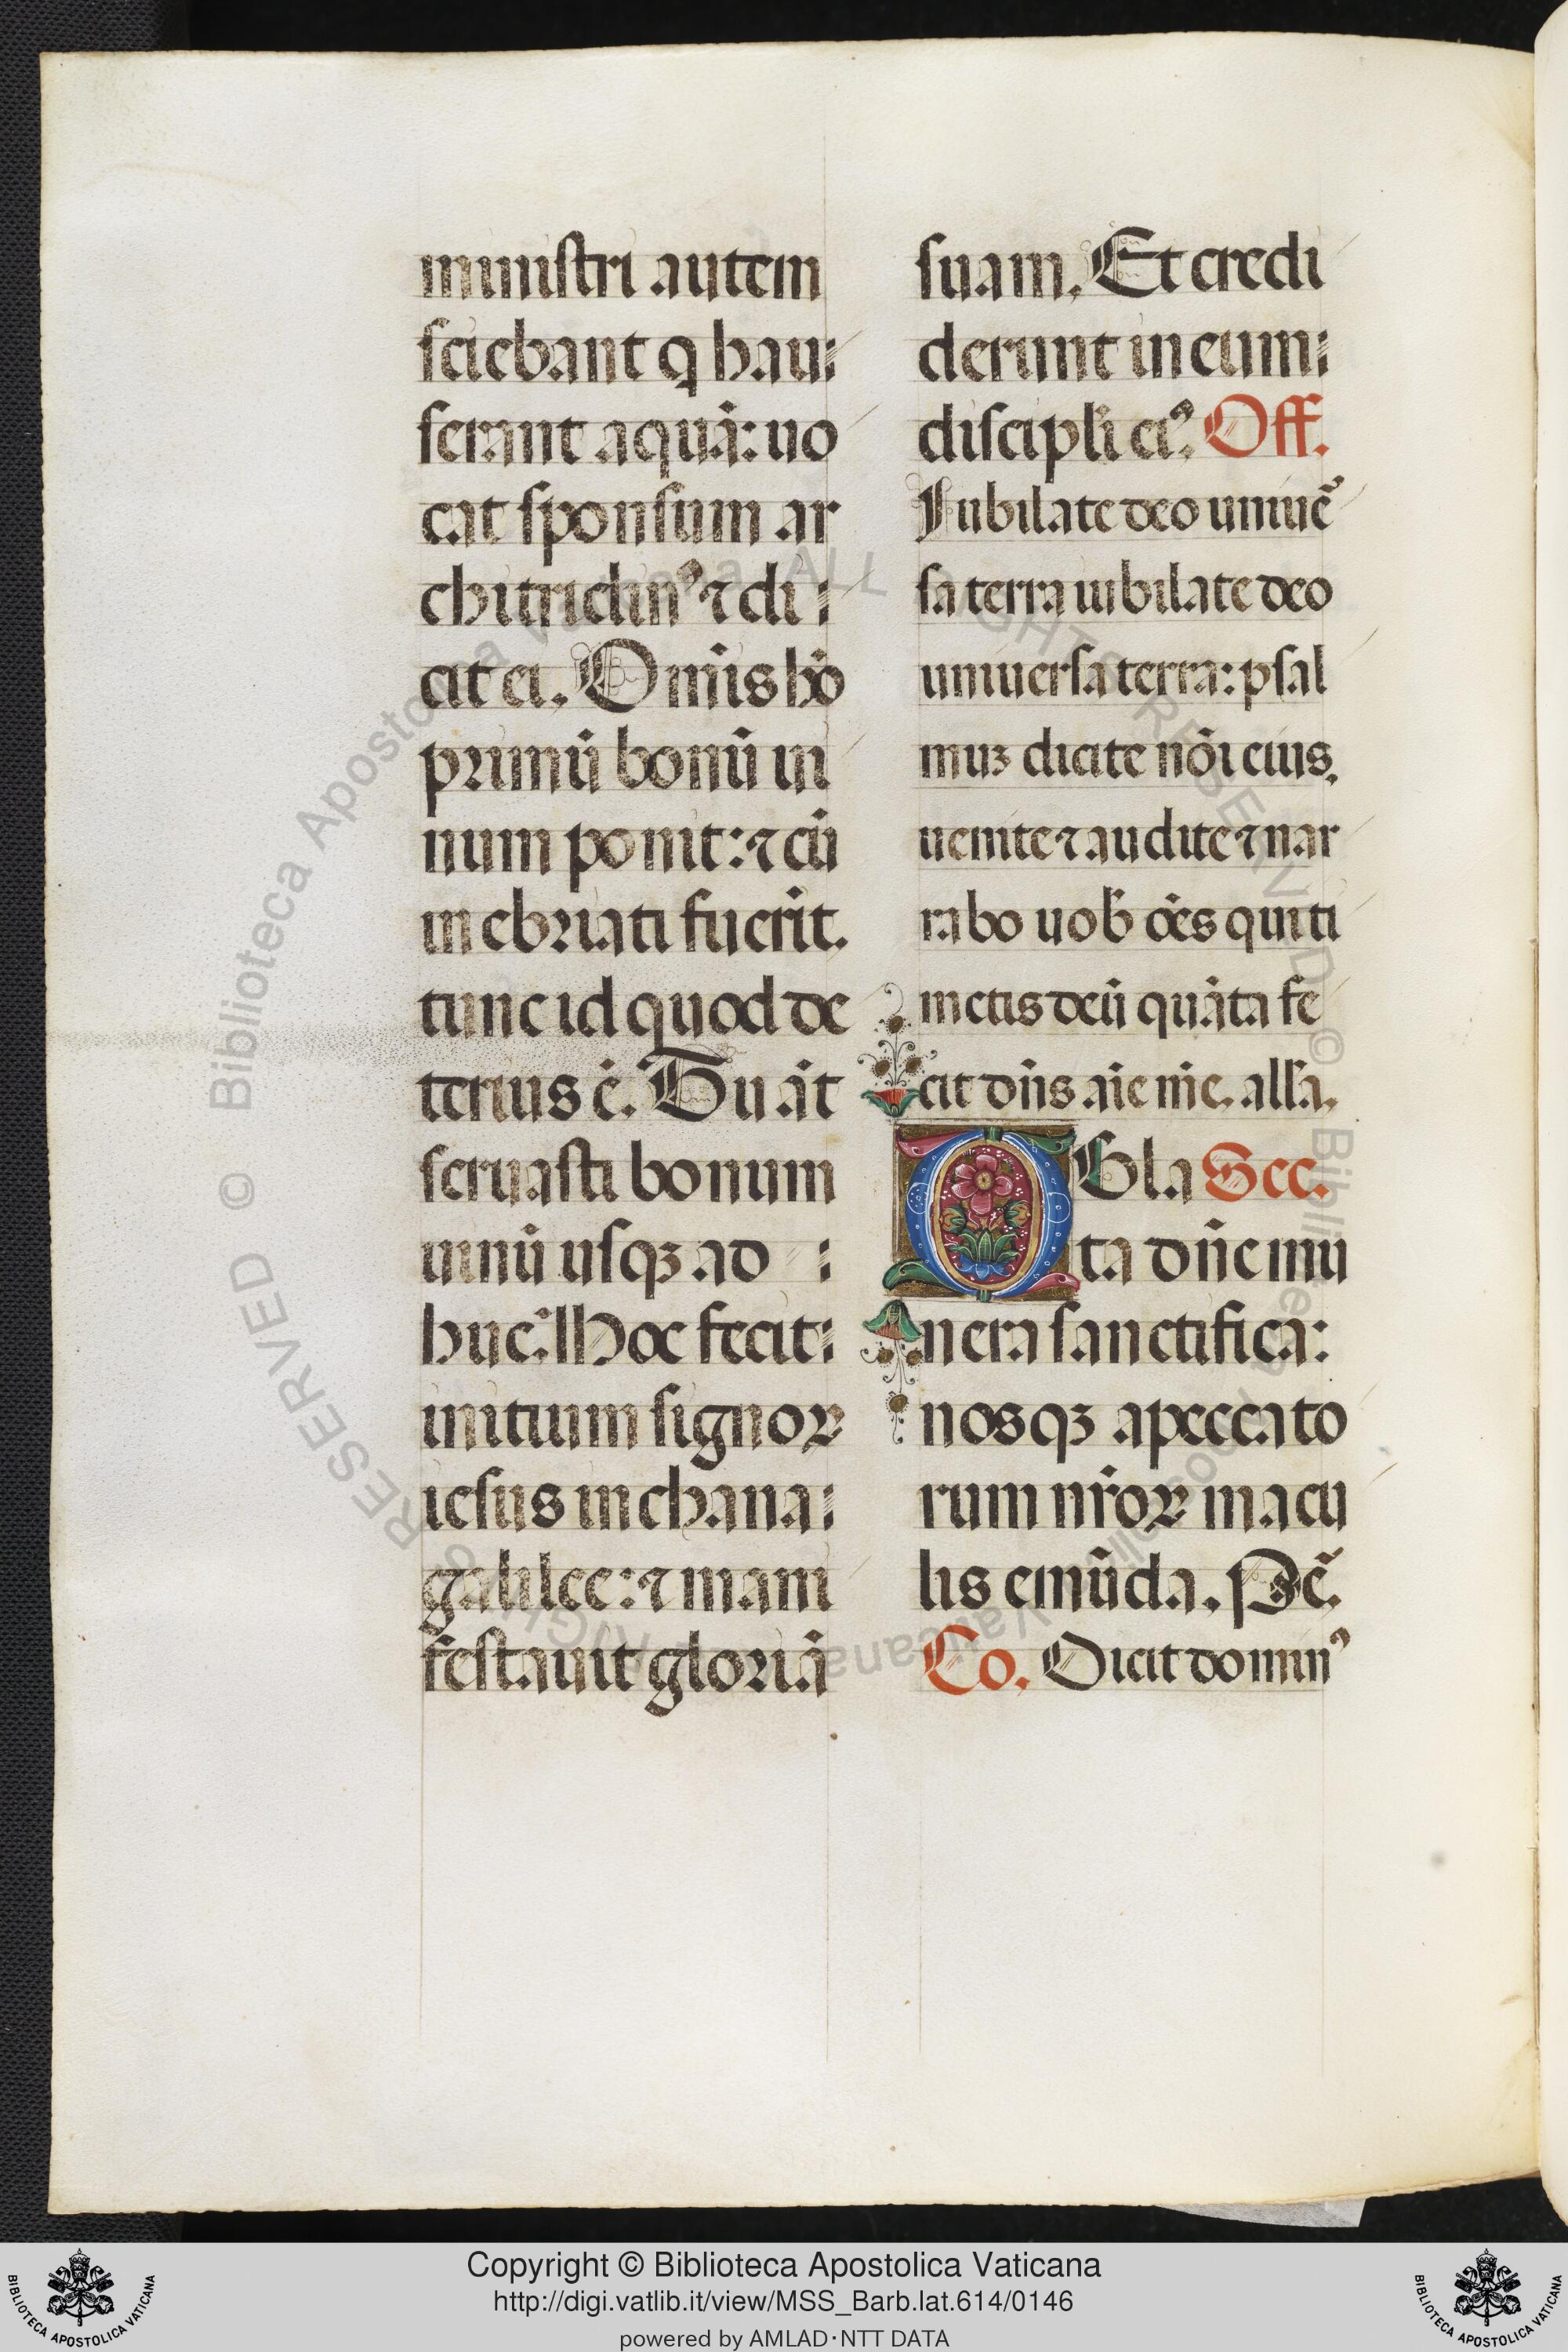 ministri autem
sciebant q hau⁝
serant aquā: uo
cat sponsum ar
chitriclinꝰ ⁊ di⁝
cit ei. Omīs hō
primū bonū ui
num ponit: ⁊ cū
inebriati fuerīt.
tunc id quod de
terius ē. Tu aūt
seruasti bonum
uinū usqꝫ ad ⁝
huc. Hoc fecit⁝
initium signoꝝ
iesus in chana⁝
galilee: ⁊ mani
festauit gloriā
suam. Et credi
derunt in eum⁝
discipłi eiꝰ. Off.
Iubilate deo uniuẽ
sa terra iubilate deo
uniuersa terra: psal
muꝫ dicite nōi eius.
uenite ⁊ audite ⁊ nar
rabo uob̄ oēs qui ti
metis deū quāta fe
cit dn̄s aīe mē. alła.
OBla Sec.
ta dn̄e mu
nera sanctifica:
nosqꝫ a peccato
rum nr̄oꝝ macu
lis emūda. Pẽ.
Co. Dicit dominꝰ
Copyright © Biblioteca Apostolica Vaticana
http://digi.vatlib.it/view/MSS_Barb.lat.614/0146
powered by AMLAD·NTT DATA